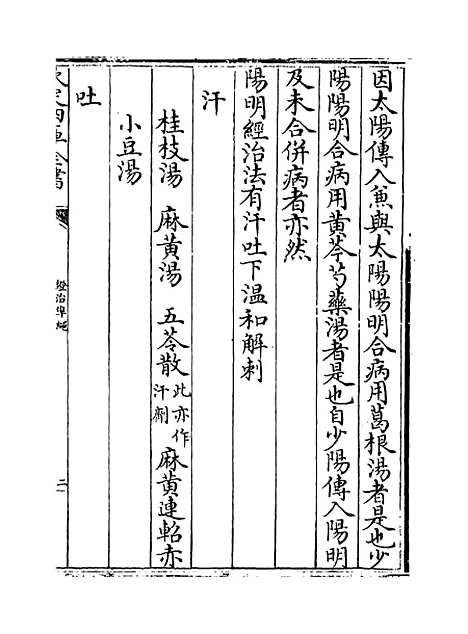 因太陽傳入兼與太陽陽明合病用葛根湯者是也少
陽陽明合病用黄芩芍藥湯者是也自少陽傳入陽明
及未合併病者亦然
陽明經治法有汗吐下温和解刺
汗
桂枝湯　麻黄湯　五苓散此亦作汗劑　麻黄連軺赤
小豆湯
吐
欽定四庫全書
證治準繩
二